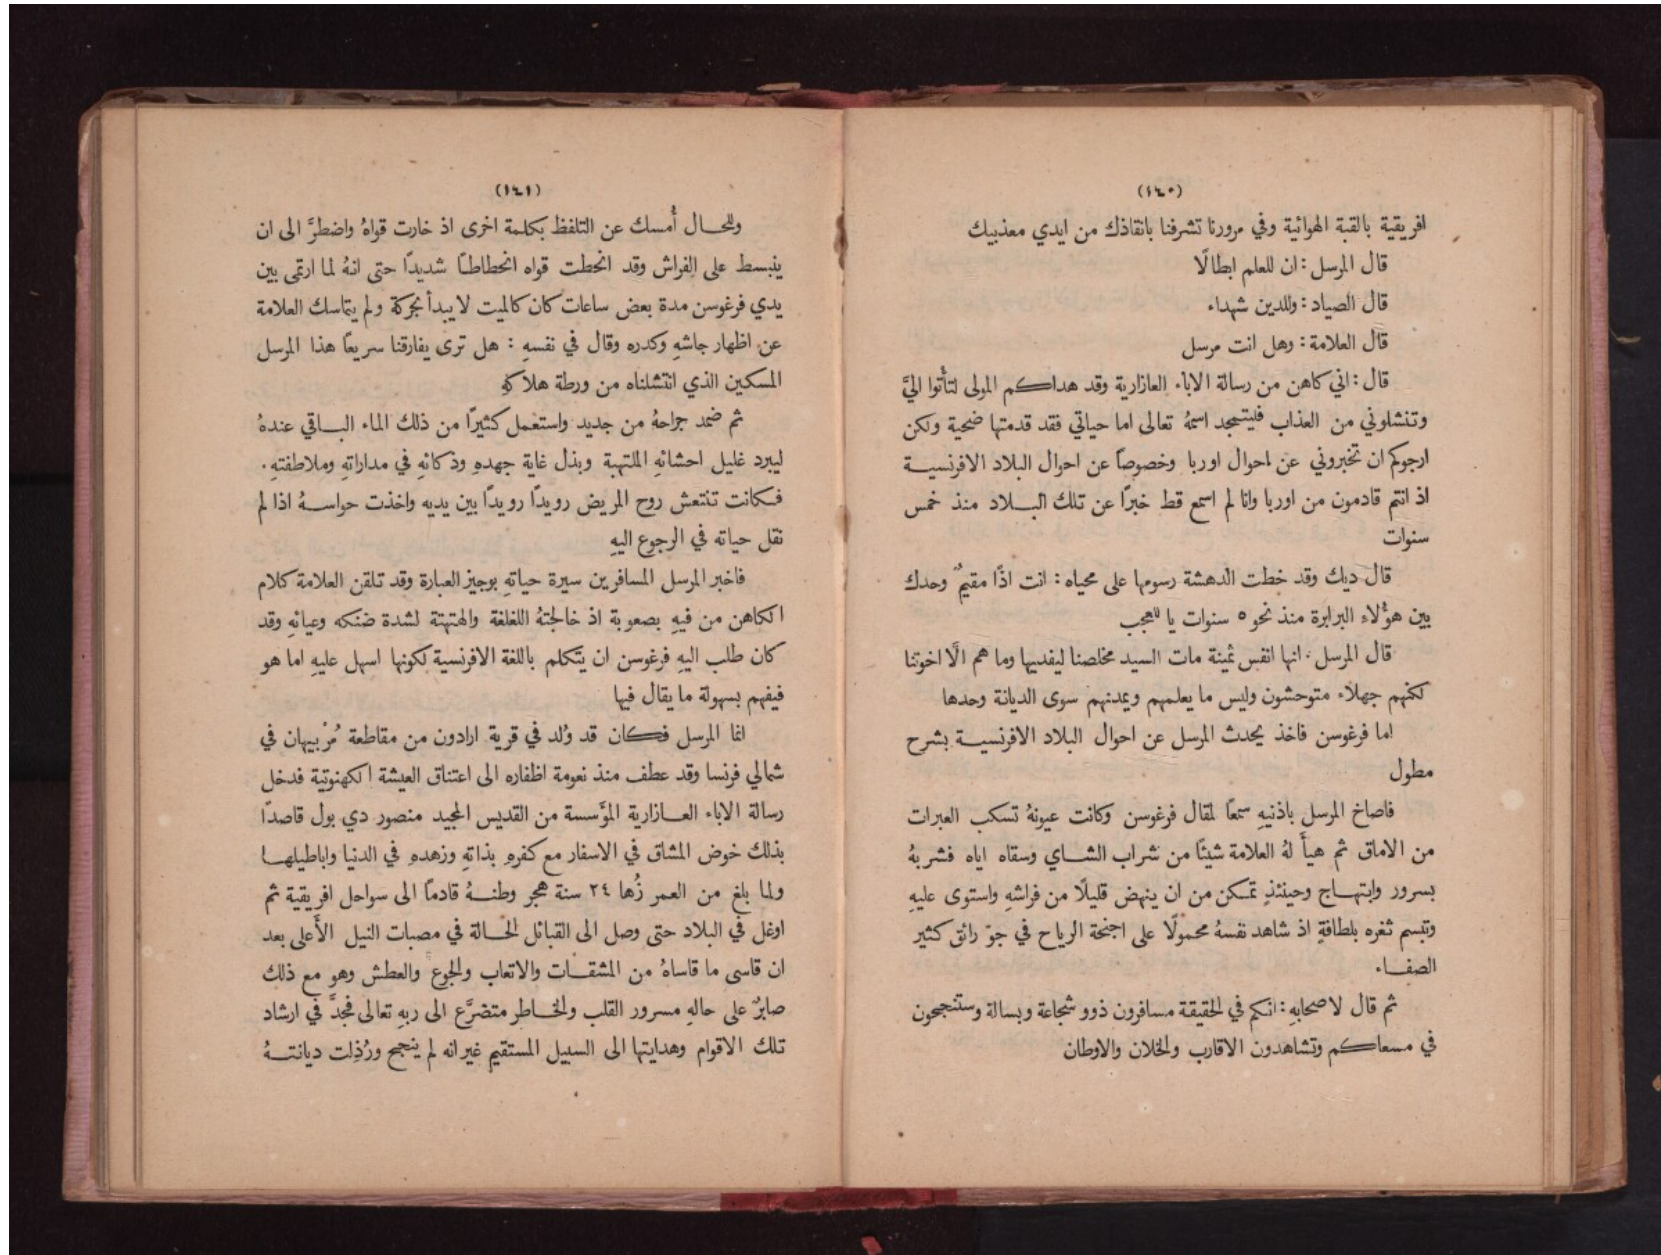 (١٤٠)
افريقية بالقبة الهوائية وفي مرورنا تشرفنا بانقاذك من ايدي معذبيك
قال المرسل : ان للعلم ابطالًا
قال الصياد : وللدين شهداء
قال العلامة : وهل انت مرسل
قال : اني كاهن من رسالة الاباء العازارية وقد هداكم المولى لتأتوا اليَّ
وتنشلوني من العذاب فليتمجد اسمهُ تعالى اما حياتي فقد قدمتها ضحية ولكن
ارجوكم ان تخبروني عن احوال اوربا وخصوصاً عن احوال البلاد الافرنسيـة
اذ انتم قادمون من اوربا وانا لم اسمع قط خبرًا عن تلك البـلاد منذ خمس
سنوات
قال ديك وقد خطت الدهشة رسومها على محياه : انت اذًا مقيمٌ وحدك
بين هؤُلاء البرابرة منذ نحو ٥ سنوات يا للعجب
قال المرسل . انها انفس ثمينة مات السيد مخلصنا ليفديها وما هم الَّا اخوتنا
لكنهم جهلاء متوحشون وليس ما يعلمهم ويمدنهم سوى الديانة وحدها
اما فرغوسن فاخذ يحدث المرسل عن احوال البلاد الافرنسيـة بشرح
مطول
فاصاخ المرسل باذنيهِ سمعًا لمقال فرغوسن وكانت عيونهُ تسكب العبرات
من الاماق ثم هيأَ لهُ العلامة شيئًا من شراب الشـاي وسقاه اياه فشربهُ
بسرور وابتهـاج وحينئذٍ تمـكن من ان ينهض قليلًا من فراشهِ واستوى عليهِ
وتبسم ثغره بلطافةٍ اذ شاهد نفسهُ محمولًا على اجنحة الرياح في جوّ رائق كثير
الصفـاء
ثم قال لاصحابهِ : انكم في الحقيقة مسافرون ذوو شجاعة وبسالة وستنجحون
في مسعاكم وتشاهدون الاقارب والخلان والاوطان
(١٤١)
وللحـال أُمسك عن التلفظ بكلمة اخرى اذ خارت قواهُ واضطرَّ الى ان
ينبسط على الفراش وقد انحطت قواه انحطاطـًا شديدًا حتى انهُ لما ارتمى بين
يدي فرغوسن مدة بعض ساعات كان كالميت لا يبدأ بحركة ولم يتماسك العلامة
عن اظهار جاشهِ وكدره وقال في نفسهِ : هل ترى يفارقنا سريعًا هذا المرسل
المسكين الذي انتشلناه من ورطة هلاكهِ
ثم ضمد جراحهُ من جديد واستعمل كثيرًا من ذلك الماء البـاقي عندهُ
ليبرد غليل احشائهِ الملتهبة وبذل غاية جهدهِ وذكائهِ في مداراتهِ وملاطفتهِ .
فـكانت تنتعش روح المريض رويدًا رويدًا بين يديه واخذت حواسـهُ اذا لم
نقل حياته في الرجوع اليهِ
فاخبر المرسل المسافرين سيرة حياتهِ بوجيز العبارة وقد تلقن العلامة كلام
الكاهن من فيهِ بصعوبة اذ خالجتهُ اللغلغة والهتهتة لشدة ضنكه وعيائهِ وقد
كان طلب اليهِ فرغوسن ان يتكلم باللغة الافرنسية لكونها اسهل عليهِ اما هو
فيفهم بسهولة ما يقال فيها
انما المرسل فـكان قد وُلد في قرية ارادون من مقاطعة مُرْبيهان في
شمالي فرنسا وقد عطف منذ نعومة اظفاره الى اعتناق العيشة الكهنوتية فدخل
رسالة الاباء العـازارية المؤَسسة من القديس المجيد منصور دي بول قاصدًا
بذلك خوض المشاق في الاسفار مع كفرهِ بذاتهِ وزهدهِ في الدنيا واباطيلهـا
ولما بلغ من العمر زُها ٢٤ سنة هجر وطنـهُ قادمًا الى سواحل افريقية ثم
اوغل في البلاد حتى وصل الى القبائل الحـالة في مصبات النيل الأَعلى بعد
ان قاسى ما قاساهُ من المشقـات والاتعاب والجوع والعطش وهو مع ذلك
صابرٌ على حالهِ مسرور القلب والخـاطر متضرَّع الى ربهِ تعالى فجدَّ في ارشاد
تلك الاقوام وهدايتها الى السبيل المستقيم غير انه لم ينجح ورُذِلت ديانتـهُ